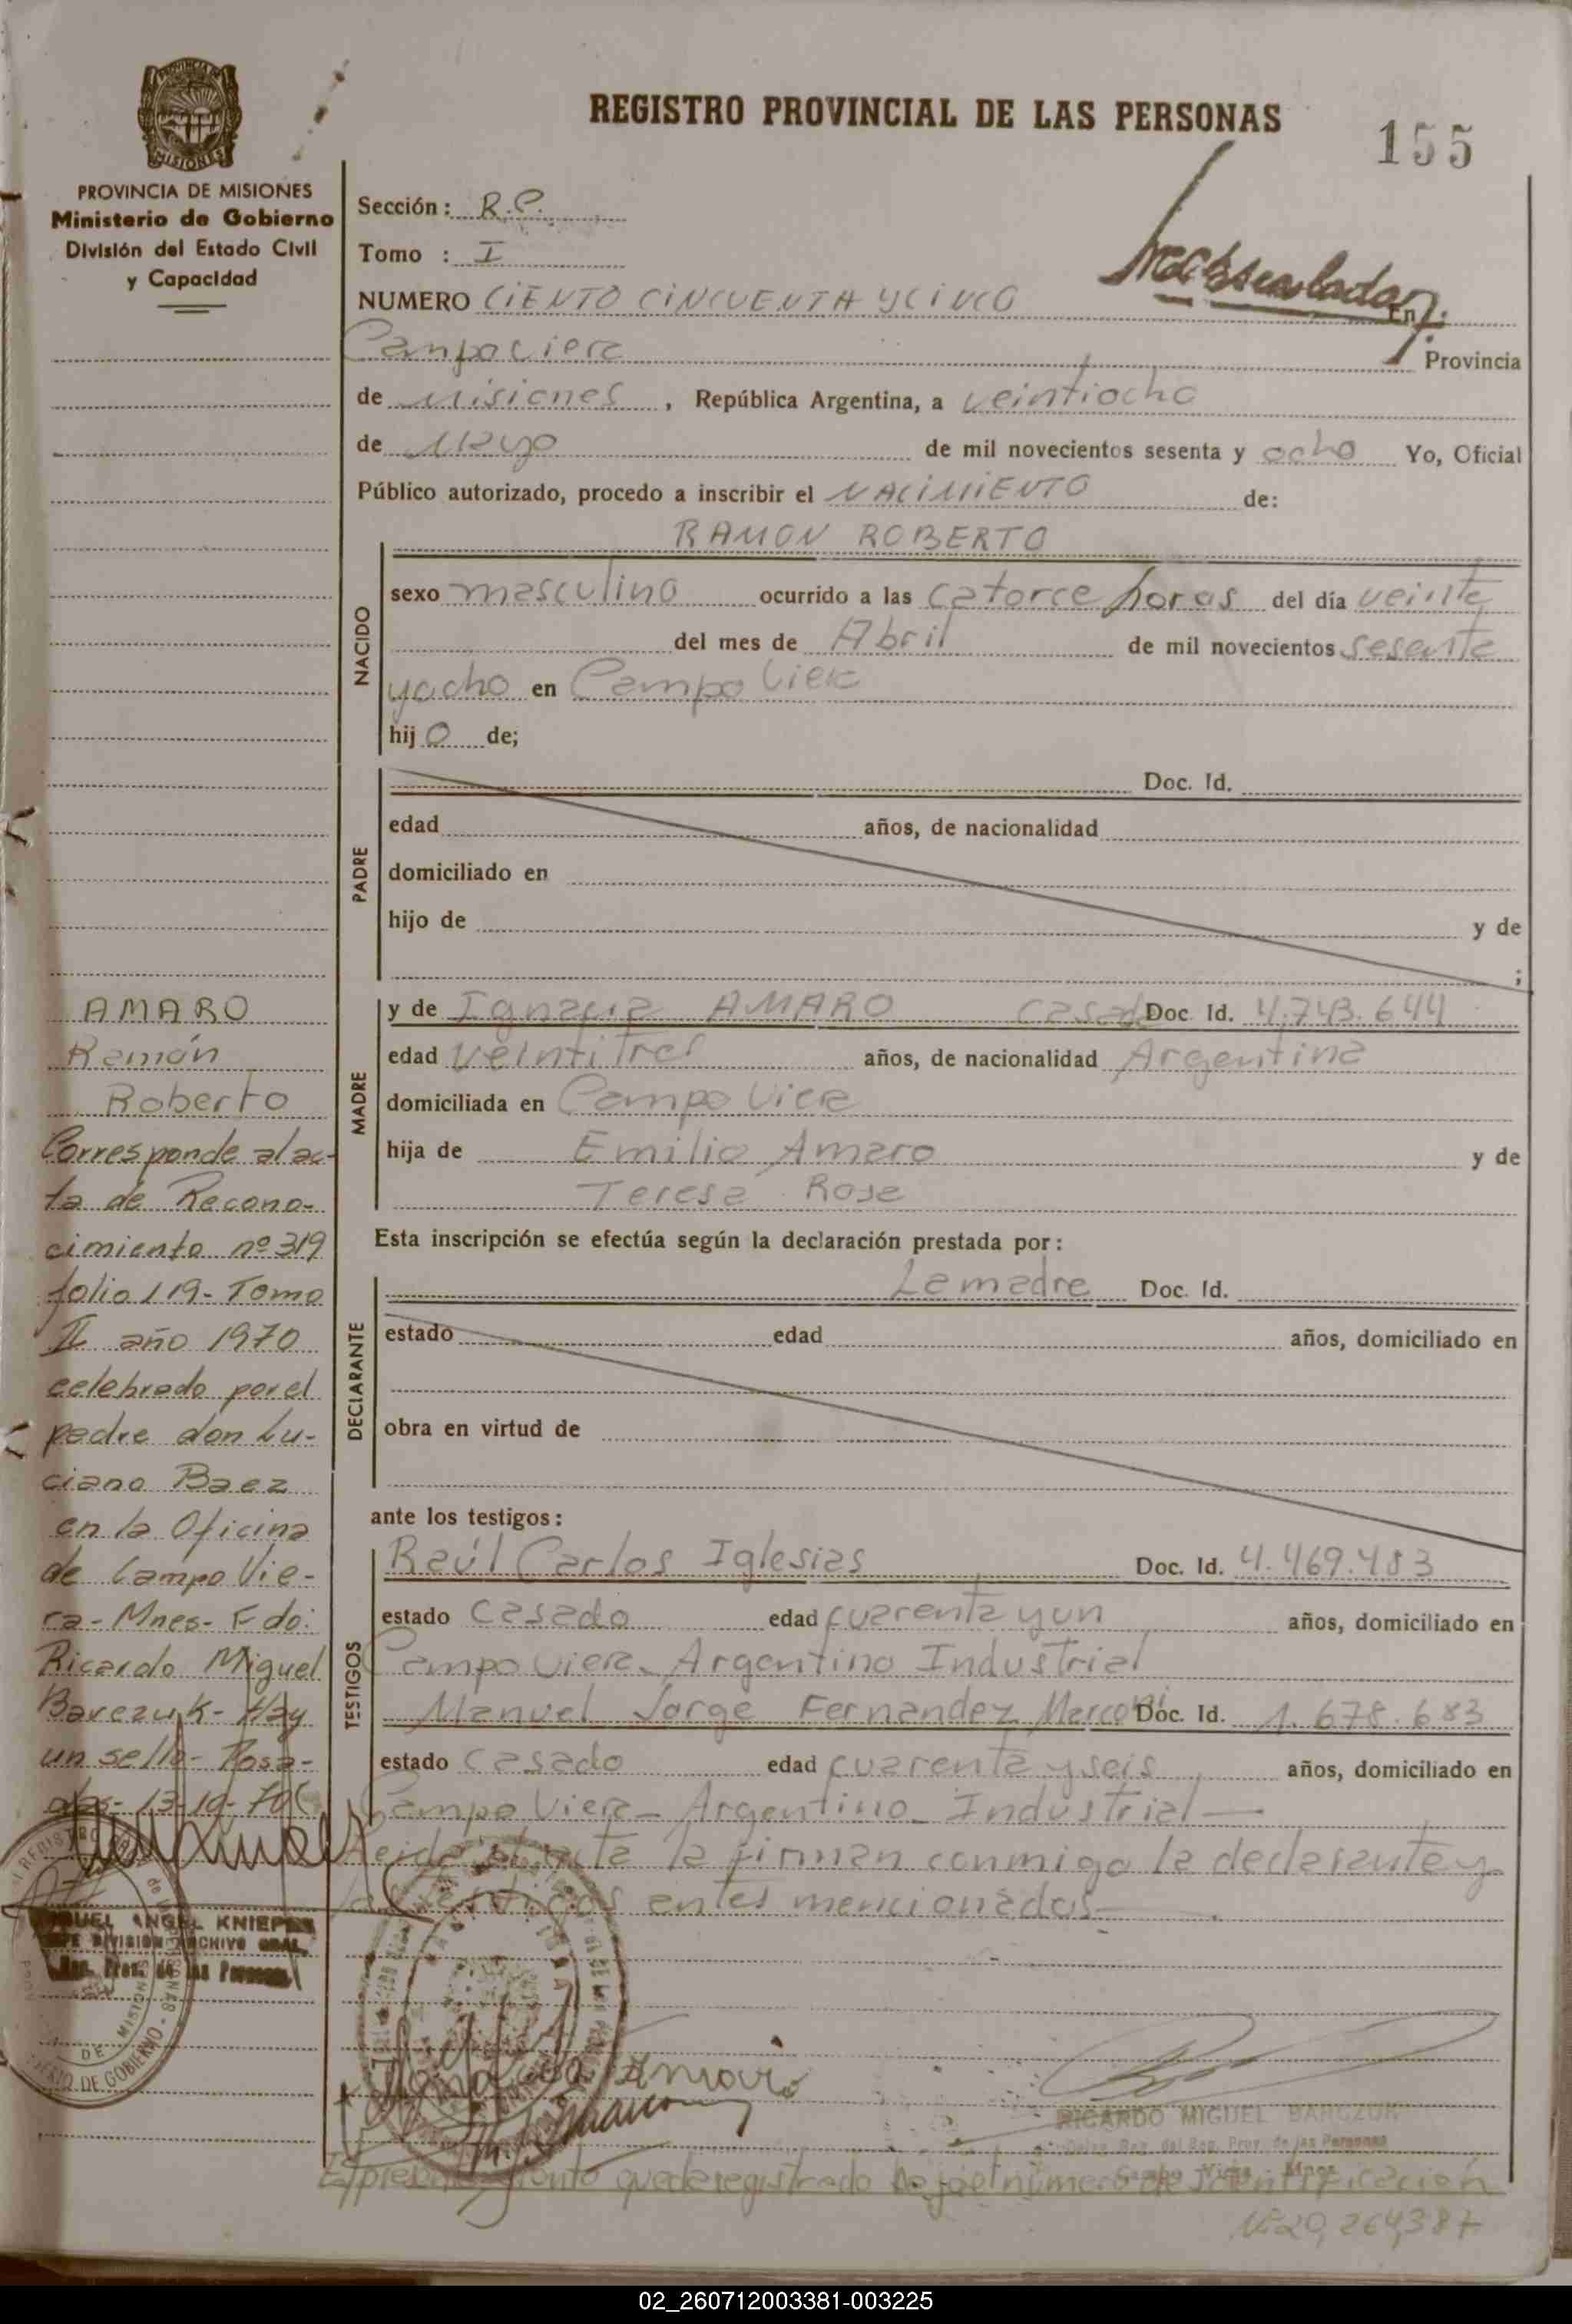 PROVINCIA DE MISIONES
Ministerio de Gobierno
División del Estado Civil
y Capacidad
REGISTRO PROVINCIAL DE LAS PERSONAS
155
Sección: R.P.
Tomo : I
NUMERO CIENTO CINCUENTA Y CINCO En
Campo Viera Provincia
de Misiones, República Argentina, a veintiocho
de Mayo de mil novecientos sesenta y ocho Yo, Oficial
Público autorizado, procedo a inscribir el NACIMIENTO de:
RAMON ROBERTO
NACIDO
sexo masculino ocurrido a las catorce horas del día veinte
del mes de Abril de mil novecientos sesenta
y ocho en Campo Viera
hij o de;
PADRE
Doc. Id.
edad años, de nacionalidad
domiciliado en
hijo de y de
;
MADRE
y de Ignacia AMARO Casada Doc. Id. 4.743.644
edad veintitres años, de nacionalidad Argentina
domiciliada en Campo Viera
hija de Emilio Amaro y de
Teresa Rosa
Esta inscripción se efectúa según la declaración prestada por:
DECLARANTE
La madre Doc. Id.
estado edad años, domiciliado en
obra en virtud de
ante los testigos:
TESTIGOS
Raúl Carlos Iglesias Doc. Id. 4.469.483
estado Casado edad cuarenta y un años, domiciliado en
Campo Viera - Argentino Industrial
Manuel Jorge Fernandez Marconi Doc. Id. 1.678.683
estado Casado edad cuarenta y seis años, domiciliado en
Campo Viera - Argentino - Industrial
Leida el acta la firman conmigo la declarante y
los testigos antes mencionados
AMARO
Ramón
Roberto
Corresponde al ac-
ta de Recono-
cimiento nº 319
folio 119 - Tomo
II año 1970
celebrado por el
padre don Lu-
ciano Baez
en la Oficina
de Campo Vie-
ra - Mnes - Fdo:
Ricardo Miguel
Barczuk - Hay
un sello - Posa-
das - 13-10-70
MIGUEL ANGEL KNIEPER
JEFE DIVISION ARCHIVO GRAL.
Reg. Prov. de las Personas
Ignacia Amaro
RICARDO MIGUEL BARCZUK
Reg. del Reg. Prov. de las Personas
Campo Viera - Mnes
El presente queda registrado bajo el número de Identificación
Nº 20,264,387
02_260712003381-003225